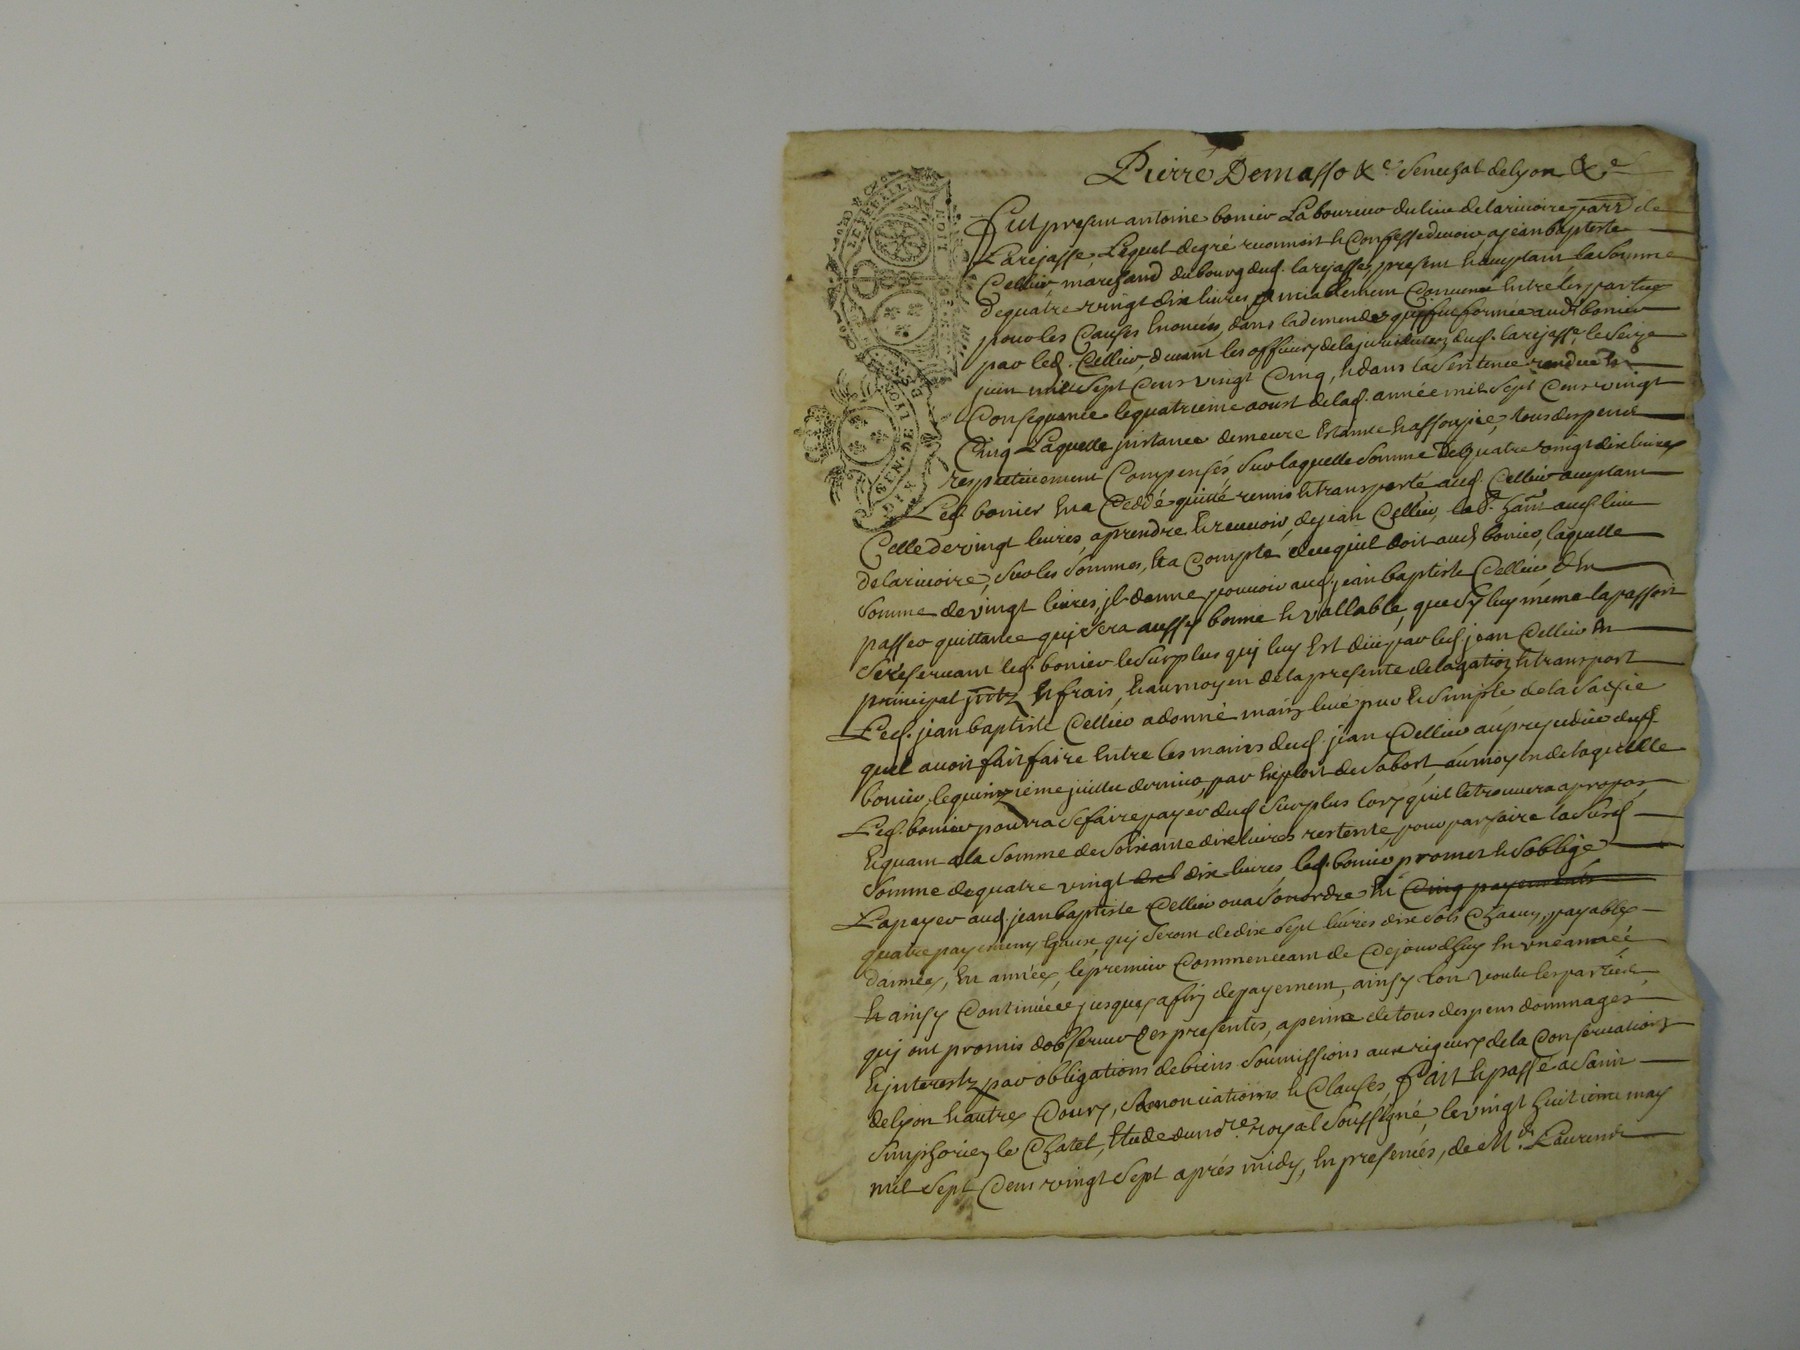 Pierre Demasso &c. Senechal de lyon &c.
Fut present antoine bonier Laboureur du lieu de lariuoire parr. de
Larejasse Lequel degré reconnoit et Confesse deuoir a jean baptiste
Cellier marchand du bourg dud. larejasse, present et aceptant la Somme
de quatre vingt dix liures amiablement Conuenue Entre les parties
pour les Causes Enoncées dans la demende quj fut formée aud bonier
par led. Cellier deuant les officiers de la jurisdiction dud. larejasse le Seize
juin mil Sept Cens vingt Cinq, et dans la Sentence rendue En
Consequance le quatrieme aoust de lad. année mil Sept Cens vingt
Cinq Laquelle jnstance demeure Estainte et assoupie, tous despens
respectiuement Compensés Sur laquelle Somme de quatre vingt dix liures
Led bonier En a Ceddé quitté remis et transporté aud. Cellier aceptant
Celle de vingt liures, a prendre et receuoir, de jean Cellier, aud. lieu
de lariuoire, Sur les Sommes, Et a Compte de ce quil doit aud bonier, laquelle
Somme de vingt liures, jl donne pouuoir aud. jean baptiste Cellier d'En
passer quittance quj Sera aussy bonne et vallable, que Sy luy même la passoit
Se reseruant led. bonier le Surplus quj luy Est düe par led jean Cellier En
principal jntz Et frais, Et au moyen de la presente delagation et transport
Led. jean baptiste Cellier a donné main leué pur et Simple de la Saisie
quel auoit fait faire Entre les mains dud. jean Cellier au prejudice dud
bonier, le quinzieme juillet dernier, par Exploit de Sabot, au moyen de laquelle
Led. bonier pourra Se faire payer dud Surplus lors quil le trouuera apropos,
Et quant a la Somme de Soixante dix liures restente pour parfaire la Susd
Somme de quatre vingt dix liures, led. bonier promet et Soblige
La payer aud. jean baptiste Cellier ou a Son ordre En Cinq payements
quatre payements Egaux, quj Seront de dix Sept liures dix Sols Chacun, payables
d'années, En années, le premier Commenceant de Cejourdhuy En vne année
et ainsy Continüee jusques a fin de payement, ainsy Lon voulu les parties
quj ont promis dobseruer Ces presentes, a peine de tous despens dommages
Et jnterestz par obligations de biens Soumissions aux rigeurs de la Conseruation
de lyon et autres Cours, Renonciations et Clauses Fait et passé a Saint
Simphorien le Chatel, Etude du nore. royal Soussigné, le vingt huitieme may
mil Sept Cens vingt Sept aprés midy, En presences, de Mr. Laurent